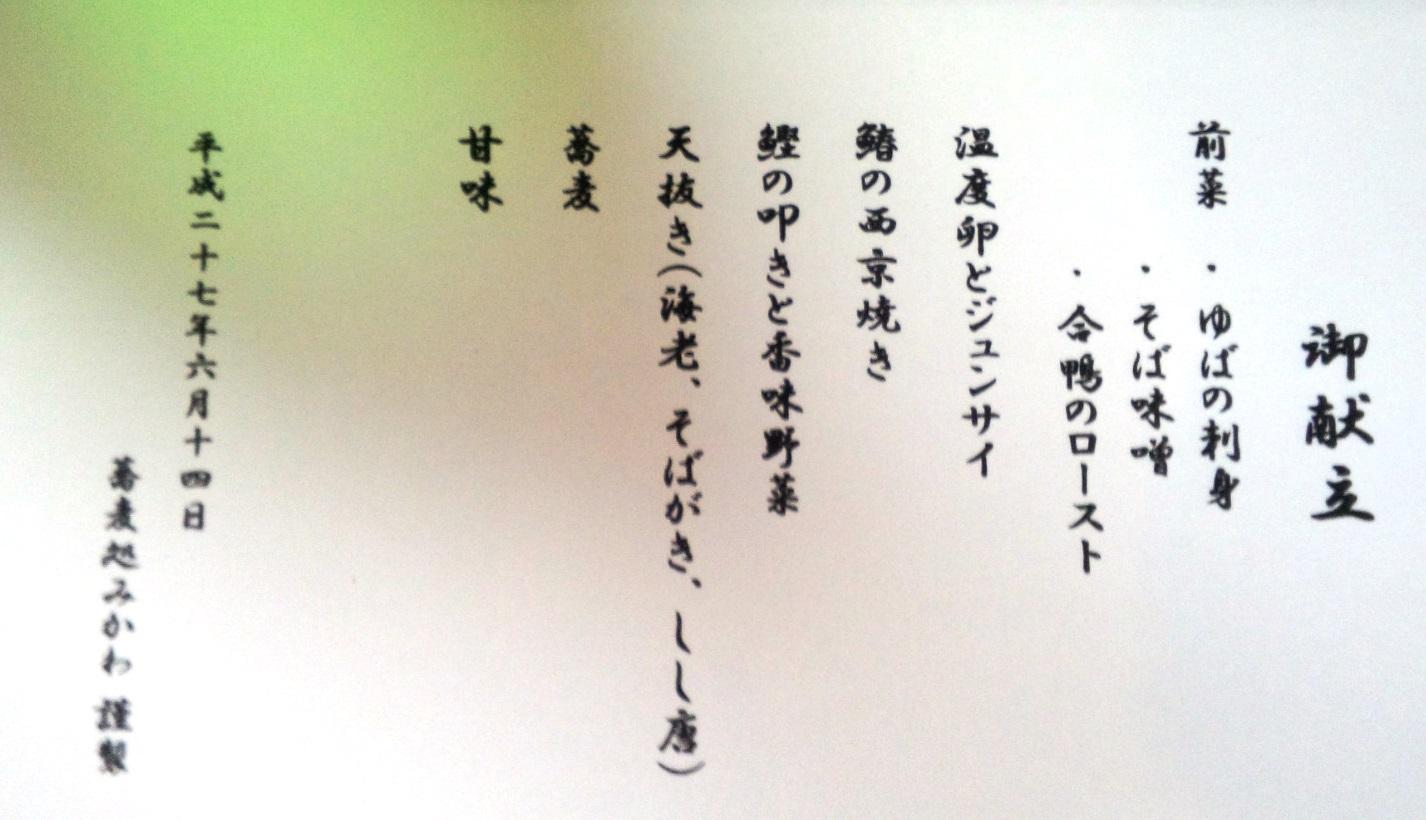 御献立
前菜 ・ゆばの刺身
・そば味噌
・合鴨のロースト
温度卵とジュンサイ
鰆の西京焼き
鰹の叩きと香味野菜
天抜き(海老、そばがき、しし唐)
蕎麦
甘味
平成二十七年六月十四日
蕎麦処みかわ 謹製